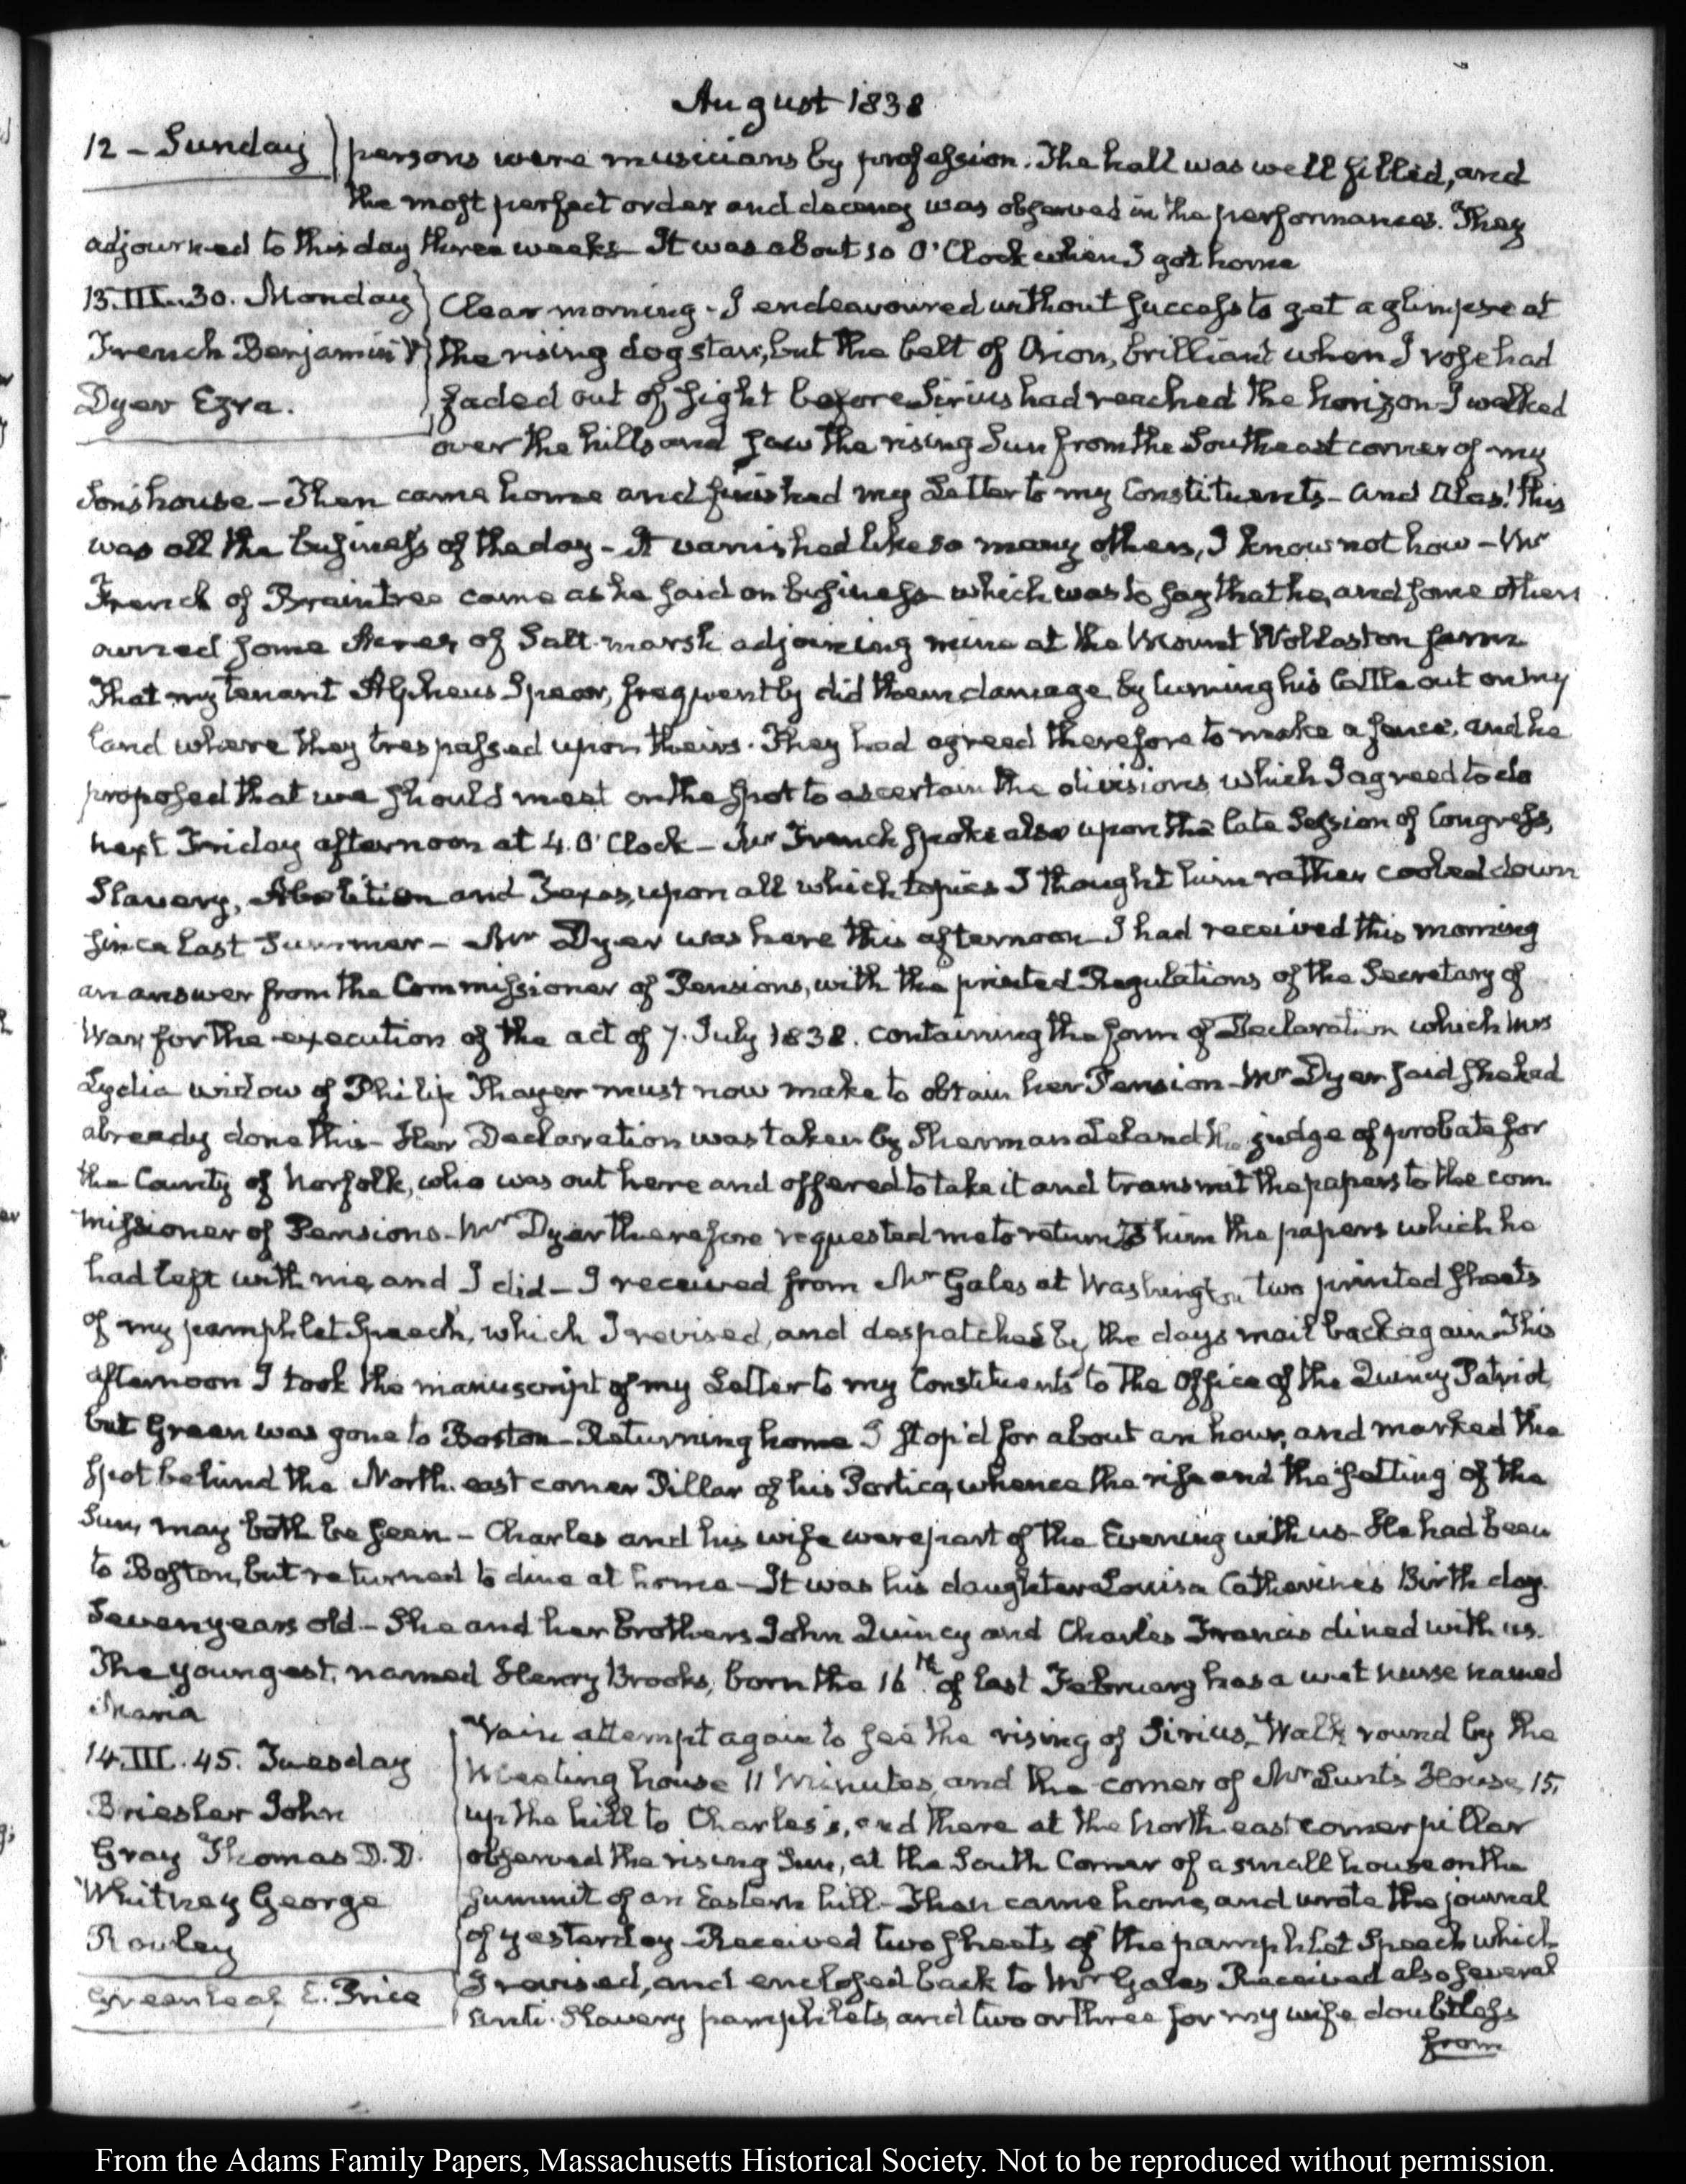 August 1838
12 – Sunday
persons were musicians by profession. The hall was well filled, and
the most perfect order and decency was observed in the performances. They
adjourned to this day three weeks – It was about 10 O'Clock when I got home
13. III. 30. Monday
French Benjamin V
Dyer Ezra.
Clear morning – I endeavoured without success to get a glimpse at
the rising dog star, but the belt of Orion, brilliant when I rose had
faded out of sight before Sirius had reached the horizon – I walked
over the hills and saw the rising Sun from the Southeast corner of my
Son's house – Then came home and finished my Letter to my Constituents – and Alas! this
was all the business of the day – It vanished like so many others, I know not how – Mr
French of Braintree came as he said on business which was to say that he, and some others
owned some Acres of Salt-marsh adjoining mine at the Mount Wollaston farm
That my tenant Alpheus Spear, frequently did them damage by turning his Cattle out on my
land where they trespassed upon theirs. They had agreed therefore to make a fence, and he
proposed that we should meet on the spot to ascertain the divisions, which I agreed to do
next Friday afternoon at 4. O'Clock – Mr French spoke also upon the late Session of Congress,
Slavery, Abolition and Texas, upon all which topics I thought him rather cooled down
since last Summer – Mr Dyer was here this afternoon – I had received this morning
an answer from the Commissioner of Pensions, with the printed Regulations of the Secretary of
War for the execution of the act of 7. July 1838. containing the form of Declaration which Mrs
Lydia widow of Philip Thayer must now make to obtain her Pension – Mr Dyer said she had
already done this – Her Declaration was taken by Sherman Leland the judge of probate for
the County of Norfolk, who was out here and offered to take it and transmit the papers to the com-
missioner of Pensions – Mr Dyer therefore requested me to return to him the papers which he
had left with me, and I did – I received from Mr Gales at Washington two printed sheets
of my pamphlet Speech, which I revised, and despatched by the days mail back again – This
afternoon I took the manuscript of my Letter to my Constituents to the Office of the Quincy Patriot,
but Green was gone to Boston – Returning home I stop'd for about an hour, and marked the
spot behind the North-east corner Pillar of his Portico, whence the rise and the setting of the
Sun, may both be seen – Charles and his wife were part of the Evening with us – He had been
to Boston, but returned to dine at home – It was his daughter Louisa Catherine's Birth day.
Seven years old – She and her brothers John Quincy and Charles Francis dined with us.
The youngest, named Henry Brooks, born the 16th of last February has a wet nurse named
Maria
14. III. 45. Tuesday
Briesler John
Gray Thomas D.D.
Whitney George
Rowley
Greenleaf E. Price
Vain attempt again to see the rising of Sirius – Walk round by the
Meeting house 11 Minutes, and the corner of Mr Lunt's House, 15,
up the hill to Charles's, and there at the North east corner pillar
observed the rising Sun, at the South Corner of a small house on the
summit of an Eastern hill – Then came home, and wrote the journal
of yesterday – Received two sheets of the pamphlet Speech which
I revised, and enclosed back to Mr Gales – Received also several
Anti-Slavery pamphlets, and two or three for my wife doubtless
from
From the Adams Family Papers, Massachusetts Historical Society. Not to be reproduced without permission.